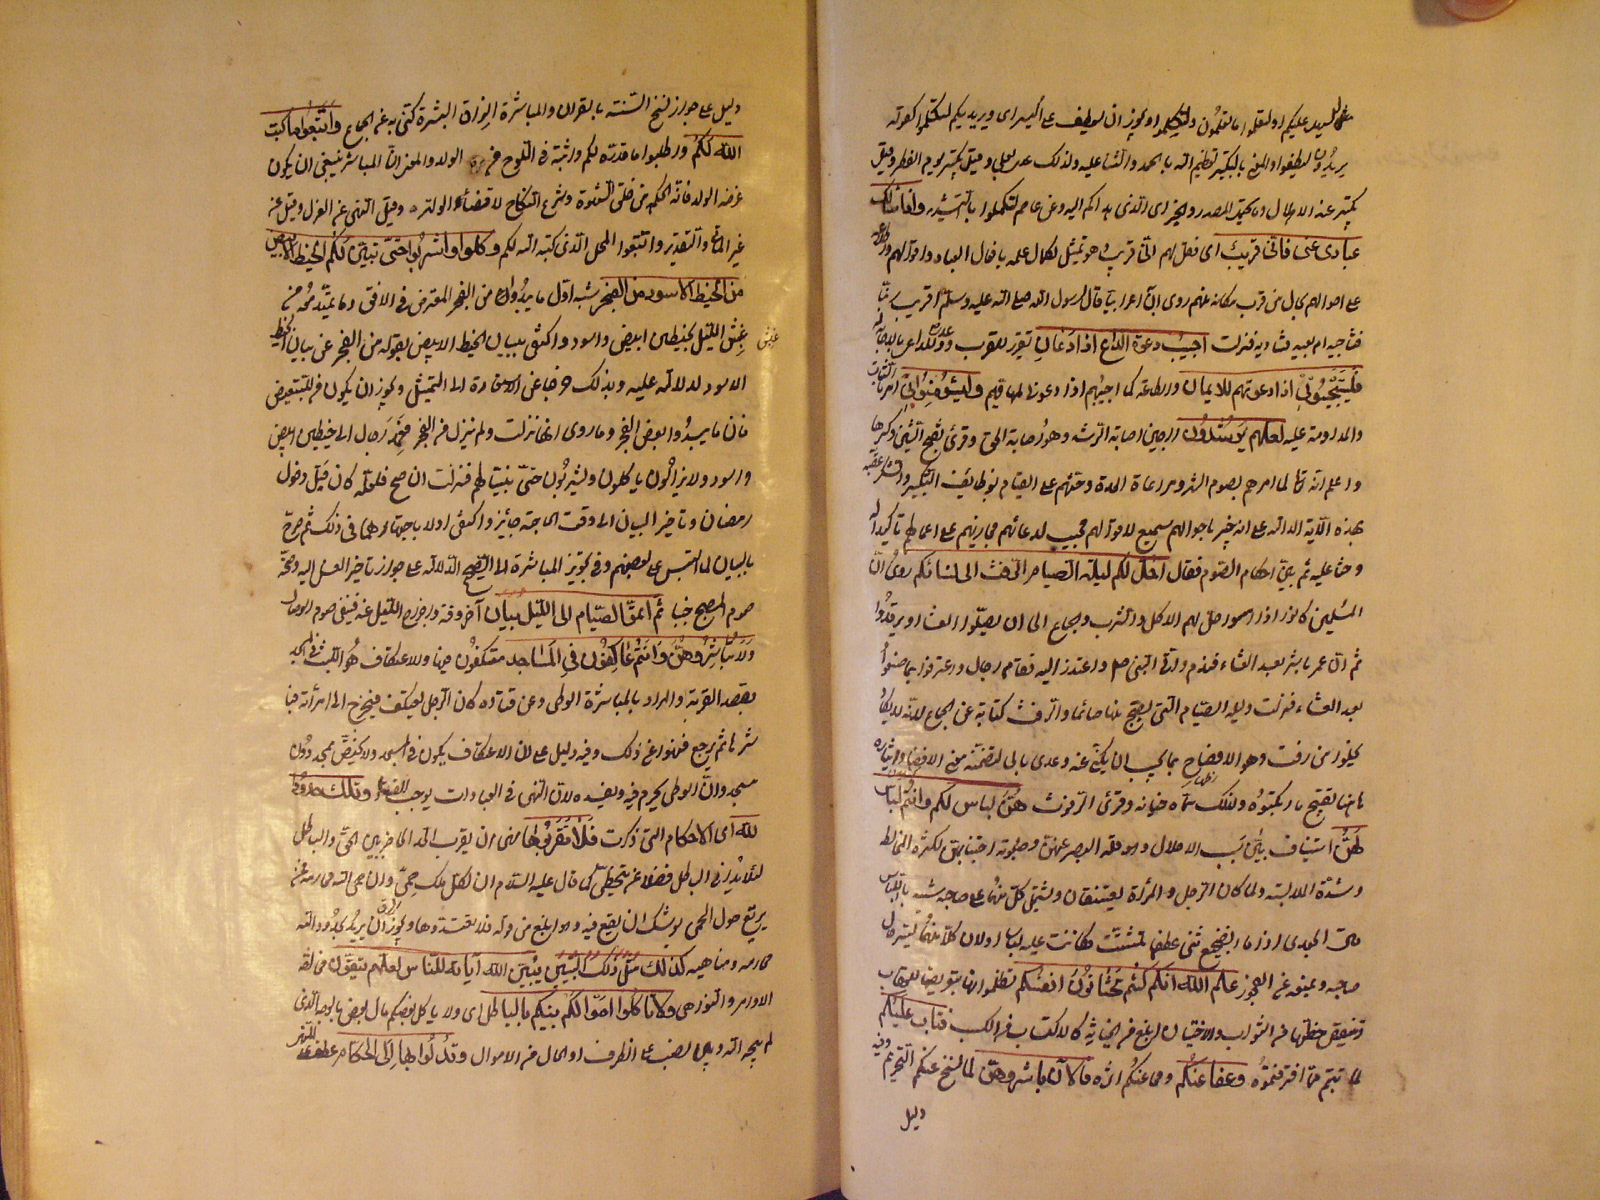 على اليسير عليكم او لتعلموا ما تعلمون ولتكملوا ويجوز ان يعطف على اليسر اى ويريد بكم لتكملوا كقوله
يريدون ليطفؤا والمعنى بالتكبير تعظيم الله بالحمد والثناء عليه ولذلك عدى بعلى وقيل تكبير يوم الفطر وقيل
التكبير عند الاهلال وما يحتمل المصدر والخبر اى الذى هداكم اليه وعن عاصم لتكملوا بالتشديد واذا سألك
عبادى عنى فانى قريب اى فقل لهم انى قريب وهو تمثيل لكمال علمه بافعال العباد واقوالهم واطلاعه
على احوالهم بحال من قرب مكانه منهم روى ان اعرابيا قال لرسول الله صلى الله عليه وسلم اقريب ربنا
فنناجيه ام بعيد فنناديه فنزلت اجيب دعوة الداع اذا دعان تقرير للقرب ووعد للداعى بالاجابة
فليستجيبوا لى اذا دعوتهم للايمان والطاعة كما اجيبهم اذا دعونى لمهماتهم وليؤمنوا بى امر بالثبات
والمداومة عليه لعلهم يرشدون راجين اصابة الرشد وهو اصابة الحق وقرئ بفتح الشين وكسرها
واعلم انه تعالى لما امرهم بصوم الشهر ومراعاة العدة وحثهم على القيام بوظائف التكبير والشكر عقبه
بهذه الآية الدالة على انه خبير باحوالهم سميع لاقوالهم مجيب لدعائهم مجازيهم على اعمالهم تأكيدا له
وحثا عليه ثم بين احكام الصوم فقال احل لكم ليلة الصيام الرفث الى نسائكم روى ان
المسلمين كانوا اذا امسوا حل لهم الاكل والشرب والجماع الى ان يصلوا العشاء او يرقدوا
ثم ان عمر باشر بعد العشاء فندم واتى النبى صلم واعتذر اليه فقام رجال واعترفوا بما صنعوا
بعد العشاء فنزلت وليلة الصيام التى يصبح منها صائما والرفث كناية عن الجماع لانه لا يكاد
يخلوا من رفث وهو الافصاح بما يجب ان يكنى عنه وعدى بالى لتضمنه معنى الافضاء وايثاره
هاهنا لتقبيح ما ارتكبوه ولذلك سماه خيانة وقرئ الرفوث هن لباس لكم وانتم لباس
لهن استيناف يبين سبب الاحلال وهو قلة الصبر عنهن وصعوبة اجتنابهن لكثرة المخالطة
وشدة الملابسة ولما كان الرجل والمرأة يعتنقان ويشتمل كل منهما على صاحبه شبه باللباس
قال الجعدى اذا ما الضجيع ثنى عطفها تثنت فكانت عليه لباسا او لان كلا منهما يستر حال
صاحبه ويمنعه عن الفجور علم الله انكم كنتم تختانون انفسكم تظلمونها بتعريضها للعقاب
وتنقيص حظها من الثواب والاختيان ابلغ من الخيانة كالاكتساب من الكسب فتاب عليكم
لما تبتم مما اقترفتموه وعفا عنكم ومحا عنكم اثره فالآن باشروهن لما نسخ عنكم التحريم وفيه
دليل
دليل على جواز نسخ السنة بالقرآن والمباشرة الزاق البشرة كنى به عن الجماع وابتغوا ما كتب
الله لكم واطلبوا ما قدره لكم واثبته فى اللوح من الولد والمعنى ان المباشر ينبغى ان يكون
غرضه الولد فانه الحكمة من خلق الشهوة وشرع النكاح لا قضاء الوطر وقيل النهى عن العزل وقيل عن
غير المأتى والتقدير وابتغوا المحل الذى كتبه الله لكم وكلوا واشربوا حتى يتبين لكم الخيط الابيض
من الخيط الاسود من الفجر شبه اول ما يبدو من الفجر المعترض فى الافق وما يمتد معه من
غبش الليل بخيطين ابيض واسود واكتفى ببيان الخيط الابيض بقوله من الفجر عن بيان الخيط
غبش
الاسود لدلالته عليه وبذلك خرجا عن الاستعارة الى التمثيل ويجوز ان يكون من للتبعيض
فان ما يبدوا بعض الفجر وما روى انها نزلت ولم ينزل من الفجر فعمد رجال الى خيطين ابيض
واسود ولا يزالون ياكلون ويشربون حتى يتبينا لهم فنزلت ان صح فلعله كان قبل دخول
رمضان وتاخير البيان الى وقت الحاجة جائز واكتفى اولا باشتهارهما فى ذلك ثم صرح
بالبيان لما التبس على بعضهم وفى تجويز المباشرة الى الصبح الدلالة على جواز تاخير الغسل اليه وصحة
صوم المصبح جنبا ثم اتموا الصيام الى الليل بيان آخر وقته واخراج الليل عنه فينفى صوم الوصال
ولا تباشروهن وانتم عاكفون فى المساجد معتكفون فيها والاعتكاف هو اللبث فى المسجد
بقصد القربة والمراد بالمباشرة الوطئ وعن قتادة كان الرجل يعتكف فيخرج الى امرأته فيبا
شرها ثم يرجع فنهوا عن ذلك وفيه دليل على ان الاعتكاف يكون فى المسجد ولا يختص بمسجد دون
مسجد وان الوطى يحرم فيه ويفسده لان النهى فى العبادات يوجب الفساد وتلك حدود
الله اى الاحكام التى ذكرت فلا تقربوها نهى ان يقرب الحد الحاجز بين الحق والباطل
لئلا يدانى الباطل فضلا عن يتخطى كما قال عليه السلام ان لكل ملك حمى وان حمى الله محارمه فمن
يرتع حول الحمى يوشك ان يقع فيه وهو ابلغ من قوله فلا تعتدوها ويجوز ان يريد بحدود الله
محارمه ومناهيه كذلك مثل ذلك التبيين يبين الله آياته للناس لعلهم يتقون مخالفة
الاوامر والنواهى ولا تاكلوا اموالكم بينكم بالباطل اى ولا ياكل بعضكم مال بعض بالوجه الذى
لم يبحه الله وبين نصب على الظرف او الحال من الاموال وتدلوا بها الى الحكام عطف على المنهى